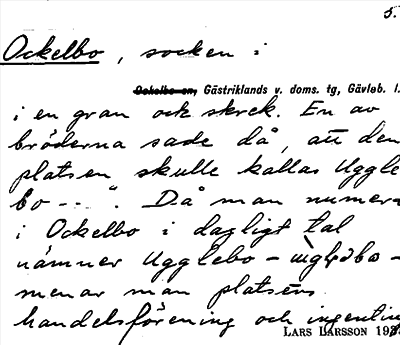 5.
Ockelbo, socken :
Ockelbo sn, Gästriklands v. doms. tg, Gävleb. l.
i en gran och skrek. En av
bröderna sade då, att den
platsen skulle kallas Uggle
bo --- ". Då man numera
i Ockelbo i dagligt tal
nämner Ugglebo -
menar man platsens
handelsförening och ingentin
LARS LARSSON